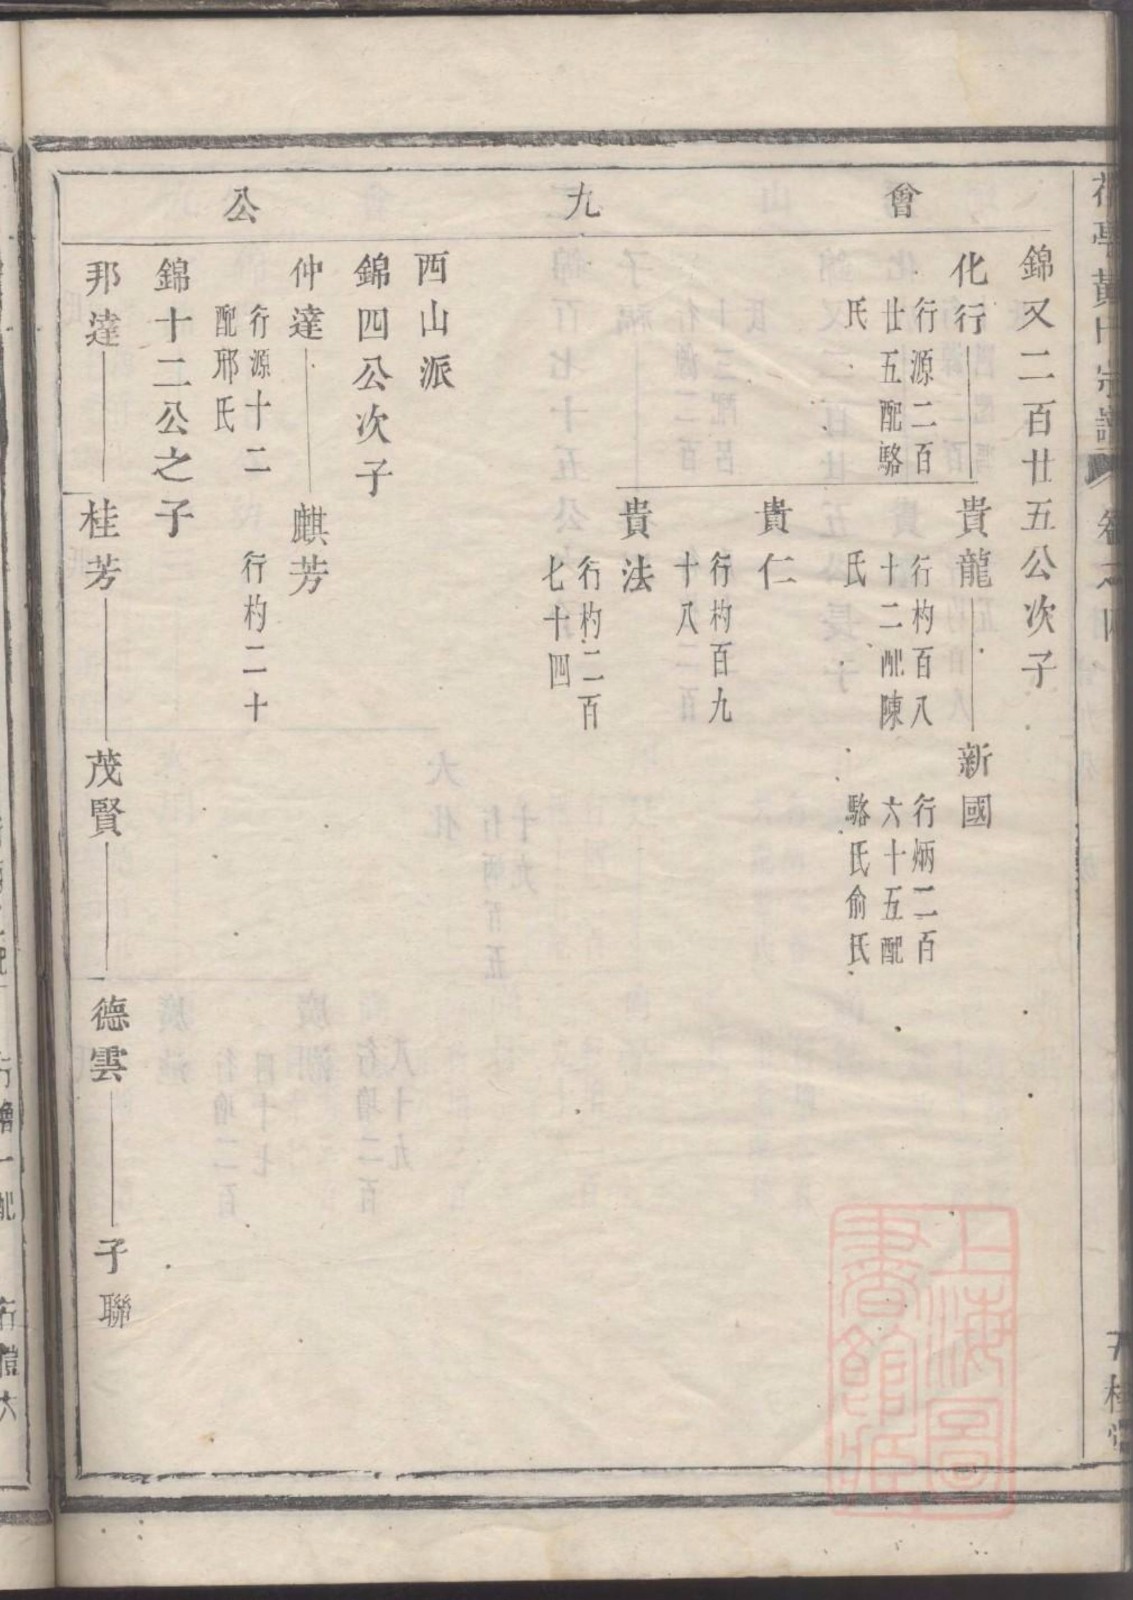 會九公
錦又二百廿五公次子
化行
行源二百
廿五配駱
氏
貴龍
行杓百八
十二配陳
氏
新國
行炳二百
六十五配
駱氏俞氏
貴仁
行杓百九
十八
貴法
行杓二百
七十四
西山派
錦四公次子
仲達
行源十二
配邢氏
麒芳
行杓二十
錦十二公之子
邦達
桂芳
茂賢
德雲
子聯
上海圖
書館藏